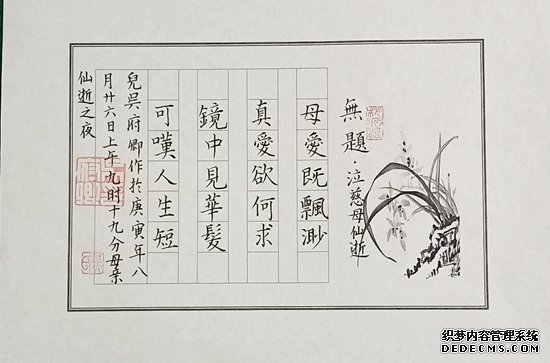 無題·泣慈母仙逝
母愛既飄渺
真愛欲何求
鏡中見華髮
可嘆人生短
兒吳府卿作於庚寅年八
月廿六日上午九时十九分母亲
仙逝之夜
织梦内容管理系统
DEDECMS.COM